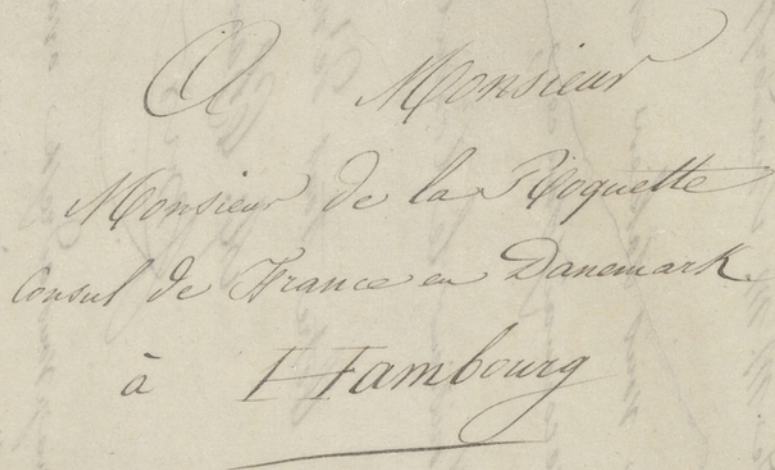 A Monsieur
Monsieur de la Roquette
Consul de France en Danemark
à Hambourg